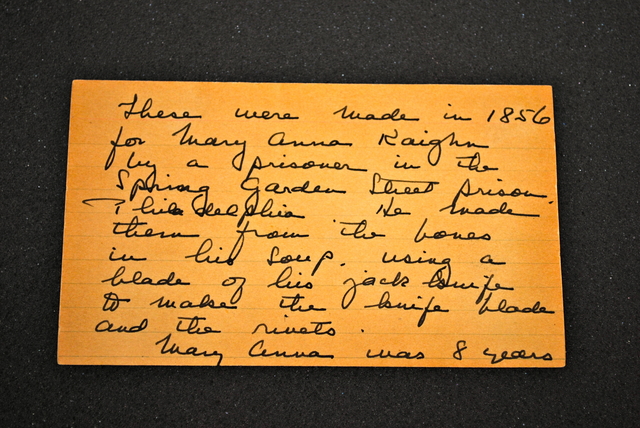 These were made in 1856
for Mary Anna Kaighn
by a prisoner in the
Spring Garden Street prison.
Philadelphia He made
them from the bones
in his soup. using a
blade of his jack knife
to make the knife blade
and the rivets.
Mary Anna was 8 years